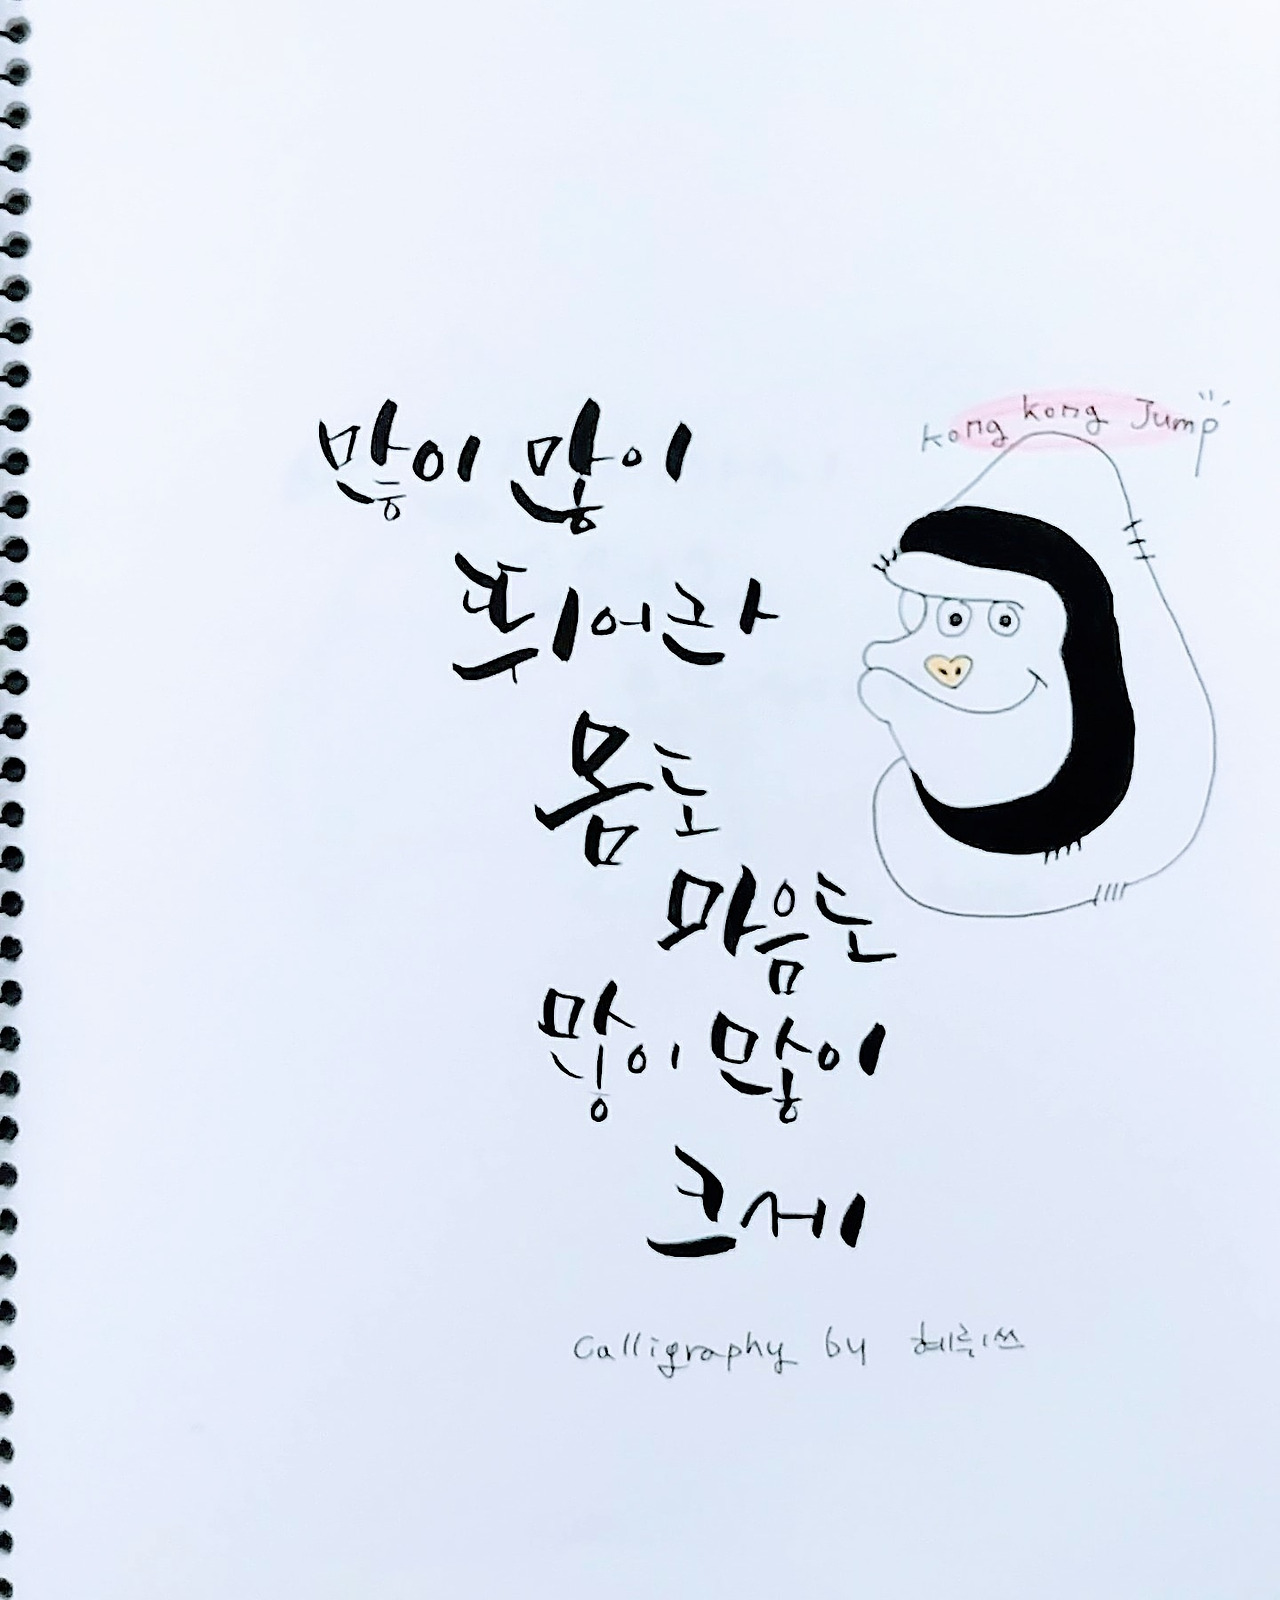 kong kong Jump
많이 많이
뛰어라
몸도
마음도
많이 많이
크세
Calligraphy by